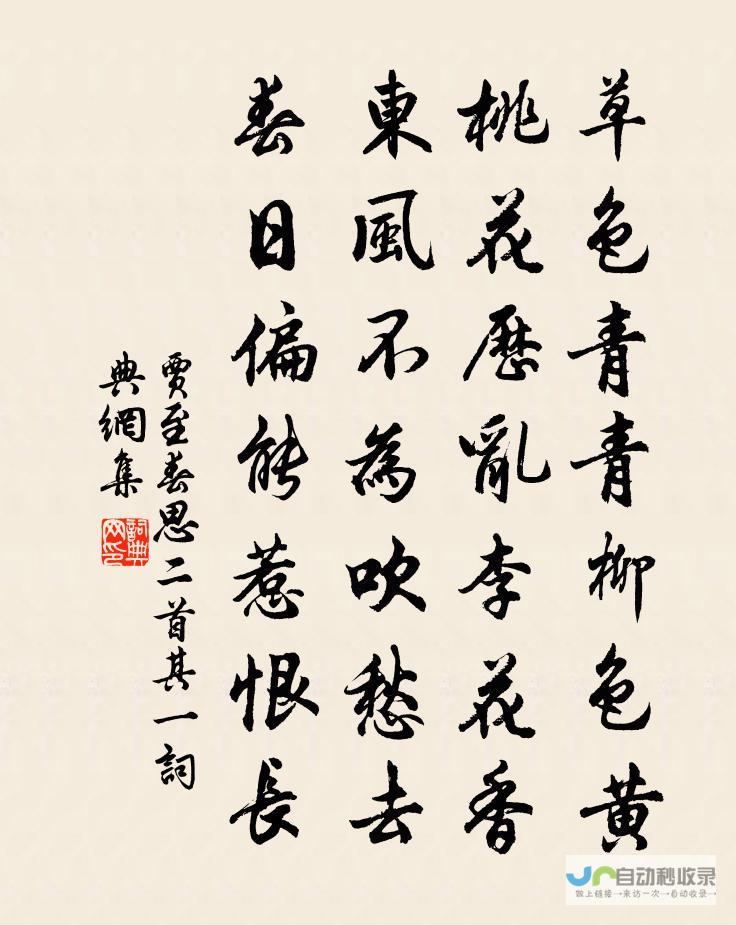 草色青青柳色黄
桃花歷亂李花香
東風不為吹愁去
春日偏能惹恨長
賈至春思二首其一詞
典網集
詞典
网印
自动秒收录
做上链接→来访一次→自动收录→